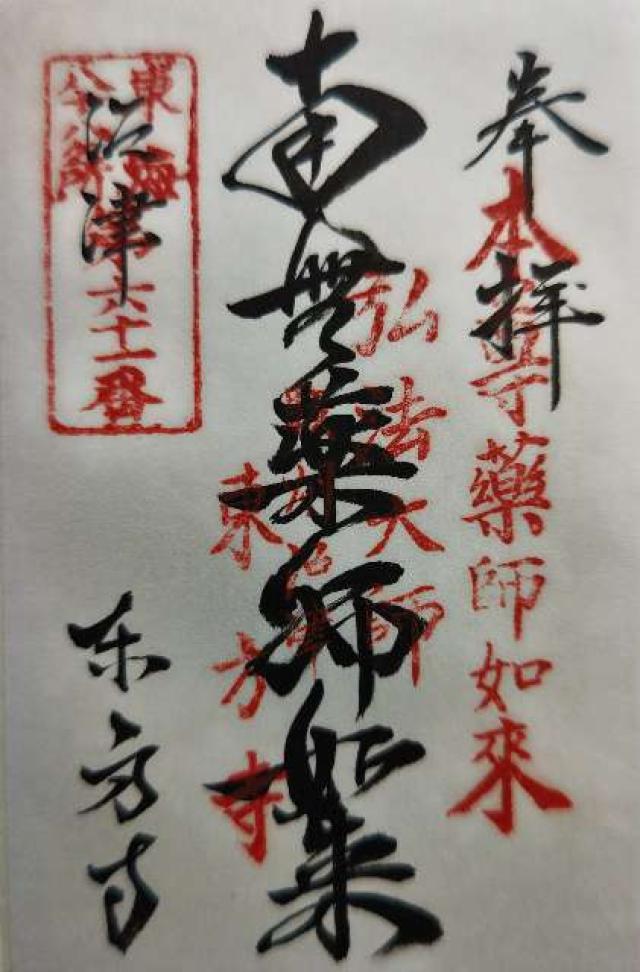 奉拝
本尊薬師如来
南無薬師如来
弘法大師
東方寺
江津
東海
六十一番
东方寺